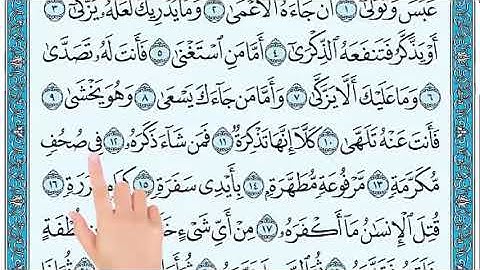 عَبَسَ وَتَوَلَّىٰٓ ١ أَن جَآءَهُ ٱلۡأَعۡمَىٰ ٢ وَمَا يُدۡرِيكَ لَعَلَّهُۥ يَزَّكَّىٰٓ ٣
أَوۡ يَذَّكَّرُ فَتَنفَعَهُ ٱلذِّكۡرَىٰٓ ٤ أَمَّا مَنِ ٱسۡتَغۡنَىٰ ٥ فَأَنتَ لَهُۥ تَصَدَّىٰ
٦ وَمَا عَلَيۡكَ أَلَّا يَزَّكَّىٰ ٧ وَأَمَّا مَن جَآءَكَ يَسۡعَىٰ ٨ وَهُوَ يَخۡشَىٰ ٩
فَأَنتَ عَنۡهُ تَلَهَّىٰ ١٠ كَلَّآ إِنَّهَا تَذۡكِرَةٞ ١١ فَمَن شَآءَ ذَكَرَهُۥ ١٢ فِي صُحُفٖ
مُّكَرَّمَةٖ ١٣ مَّرۡفُوعَةٖ مُّطَهَّرَةِۭ ١٤ بِأَيۡدِي سَفَرَةٖ ١٥ كِرَامِۭ بَرَرَةٖ ١٦
قُتِلَ ٱلۡإِنسَٰنُ مَآ أَكۡفَرَهُۥ ١٧ مِنۡ أَيِّ شَيۡءٍ نُّطۡفَةٍ